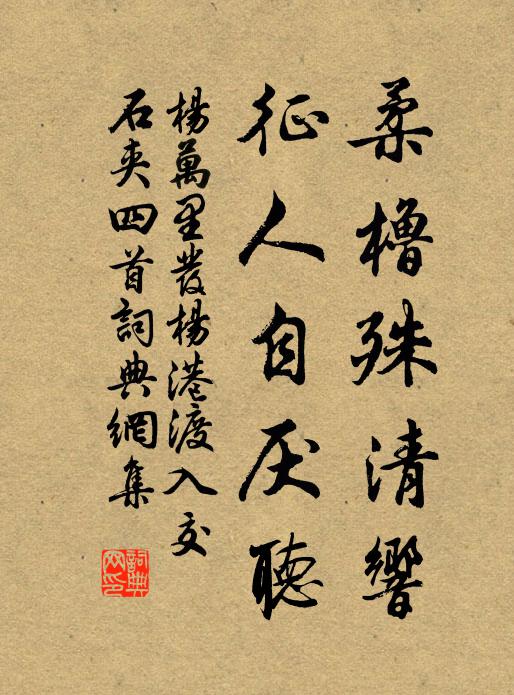 柔櫓殊清響
征人自厌聽
楊萬里發楊港渡入交
石夾四首詞典網集
詞典
网印